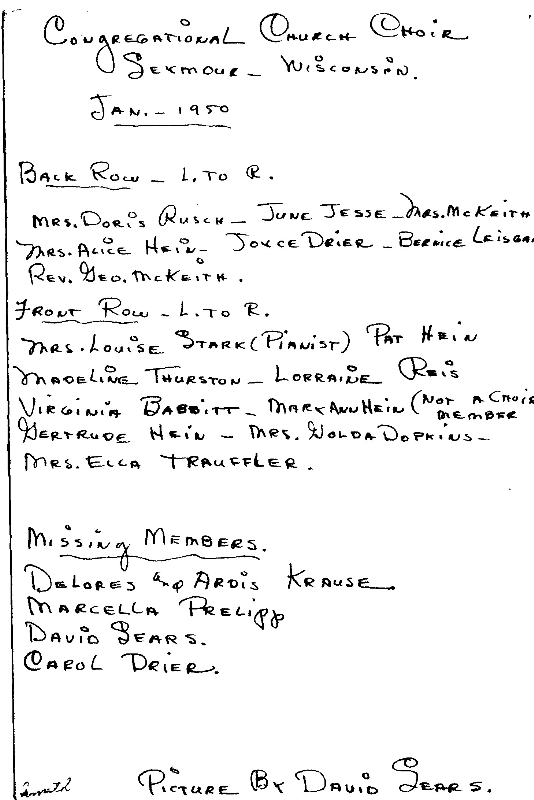 Congregational Church Choir
Seymour - Wisconsin.
Jan. - 1950
Back Row - L. to R.
Mrs. Doris Rusch - June Jesse - Mrs. McKeith
Mrs. Alice Hein - Joyce Drier - Bernice Leisga
Rev. Geo. McKeith.
Front Row - L. to R.
Mrs. Louise Stark (Pianist) Pat Hein
Madeline Thurston - Lorraine Reis
Virginia Babbitt - Mary Ann Hein (Not a Choir
member
Gertrude Hein - Mrs. Golda Dopkins -
Mrs. Ella Trauffler.
Missing Members.
Delores and Ardis Krause.
Marcella Prelipp
David Sears.
Carol Drier.
Picture By David Sears.